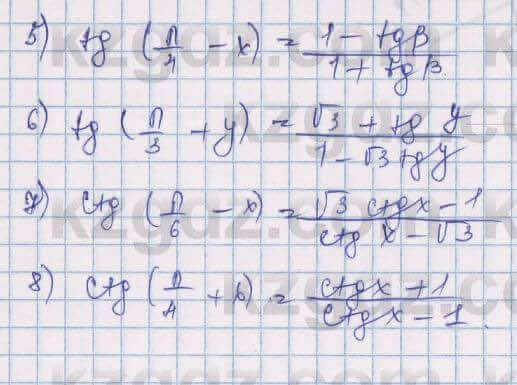 5) tg (π/4 - x) = (1 - tgβ)/(1 + tgβ)
6) tg (π/3 + y) = (√3 + tg y)/(1 - √3 tgy)
7) ctg (π/6 - x) = (√3 ctgx - 1)/(ctg x - √3)
8) ctg (π/4 + b) = (ctgx + 1)/(ctgx - 1)